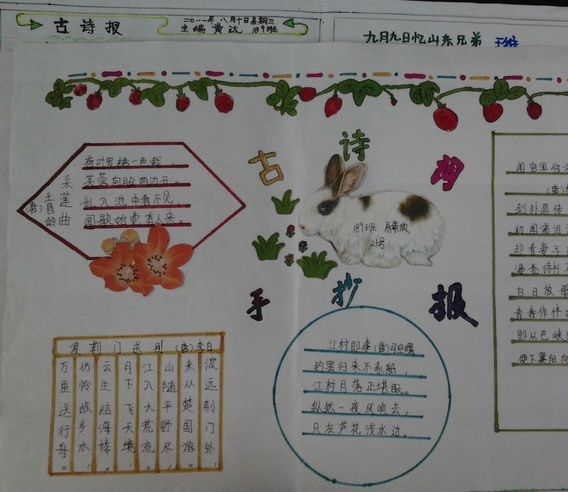 古诗报
二〇一一年八月十日星期三
主编 黄达 189班
九月九日忆山东兄弟 王维
古诗手抄报
采莲曲
(唐)王昌龄
荷叶罗裙一色裁,
芙蓉向脸两边开。
乱入池中看不见,
闻歌始觉有人来。
渡荆门送别 (唐)李白
渡远荆门外,
来从楚国游。
山随平野尽,
江入大荒流。
月下飞天镜,
云生结海楼。
仍怜故乡水,
万里送行舟。
江村即事 (唐)司空曙
钓罢归来不系船,
江村月落正堪眠。
纵然一夜风吹去,
只在芦花浅水边。
剑外忽传
初闻涕泪
却看妻子
漫卷诗书
白日放歌
青春作伴
即从巴峡
便下襄阳向